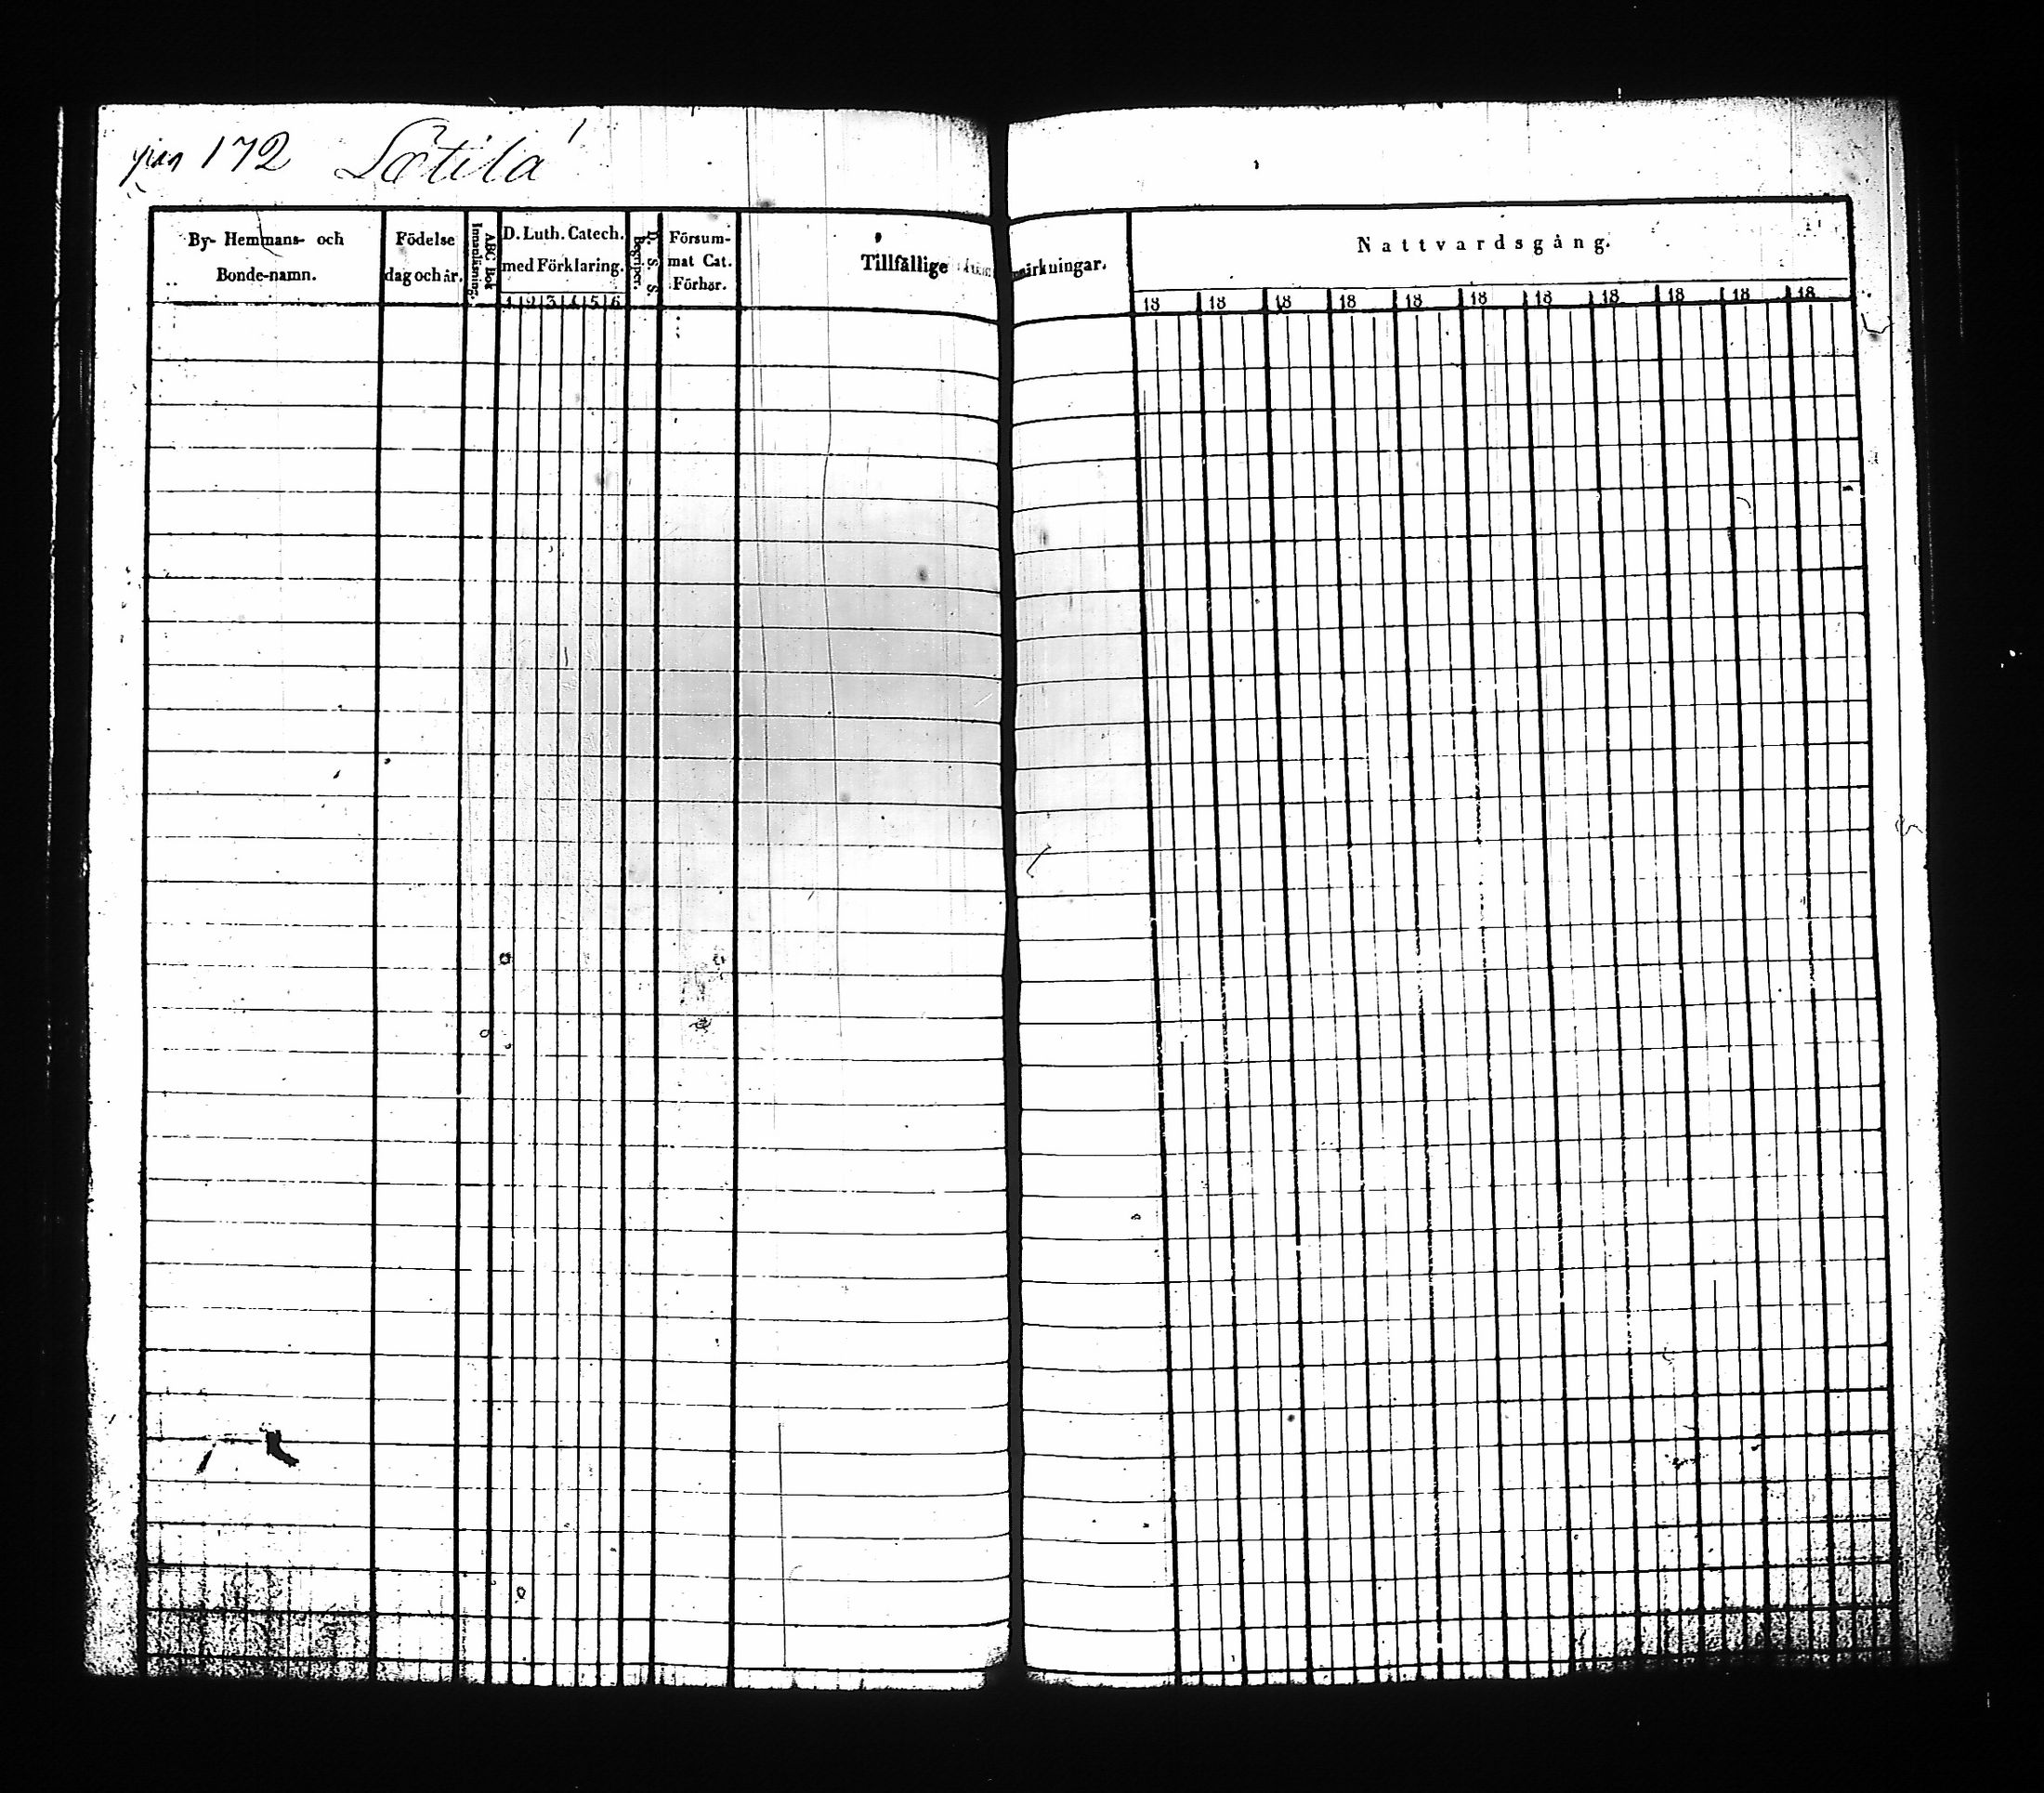 172 Sätilä
By- Hemmans- och
Bonde-namn.
Födelse
dag och år.
ABC Bok
Innanläsning.
D. Luth. Catech.
med Förklaring.
1 2 3 4 5 6
D. S. S.
Begriper.
Försum-
mat Cat.
Förhör.
Tillfällige Anmärkningar.
Nattvardsgång.
18 18 18 18 18 18 18 18 18 18 18